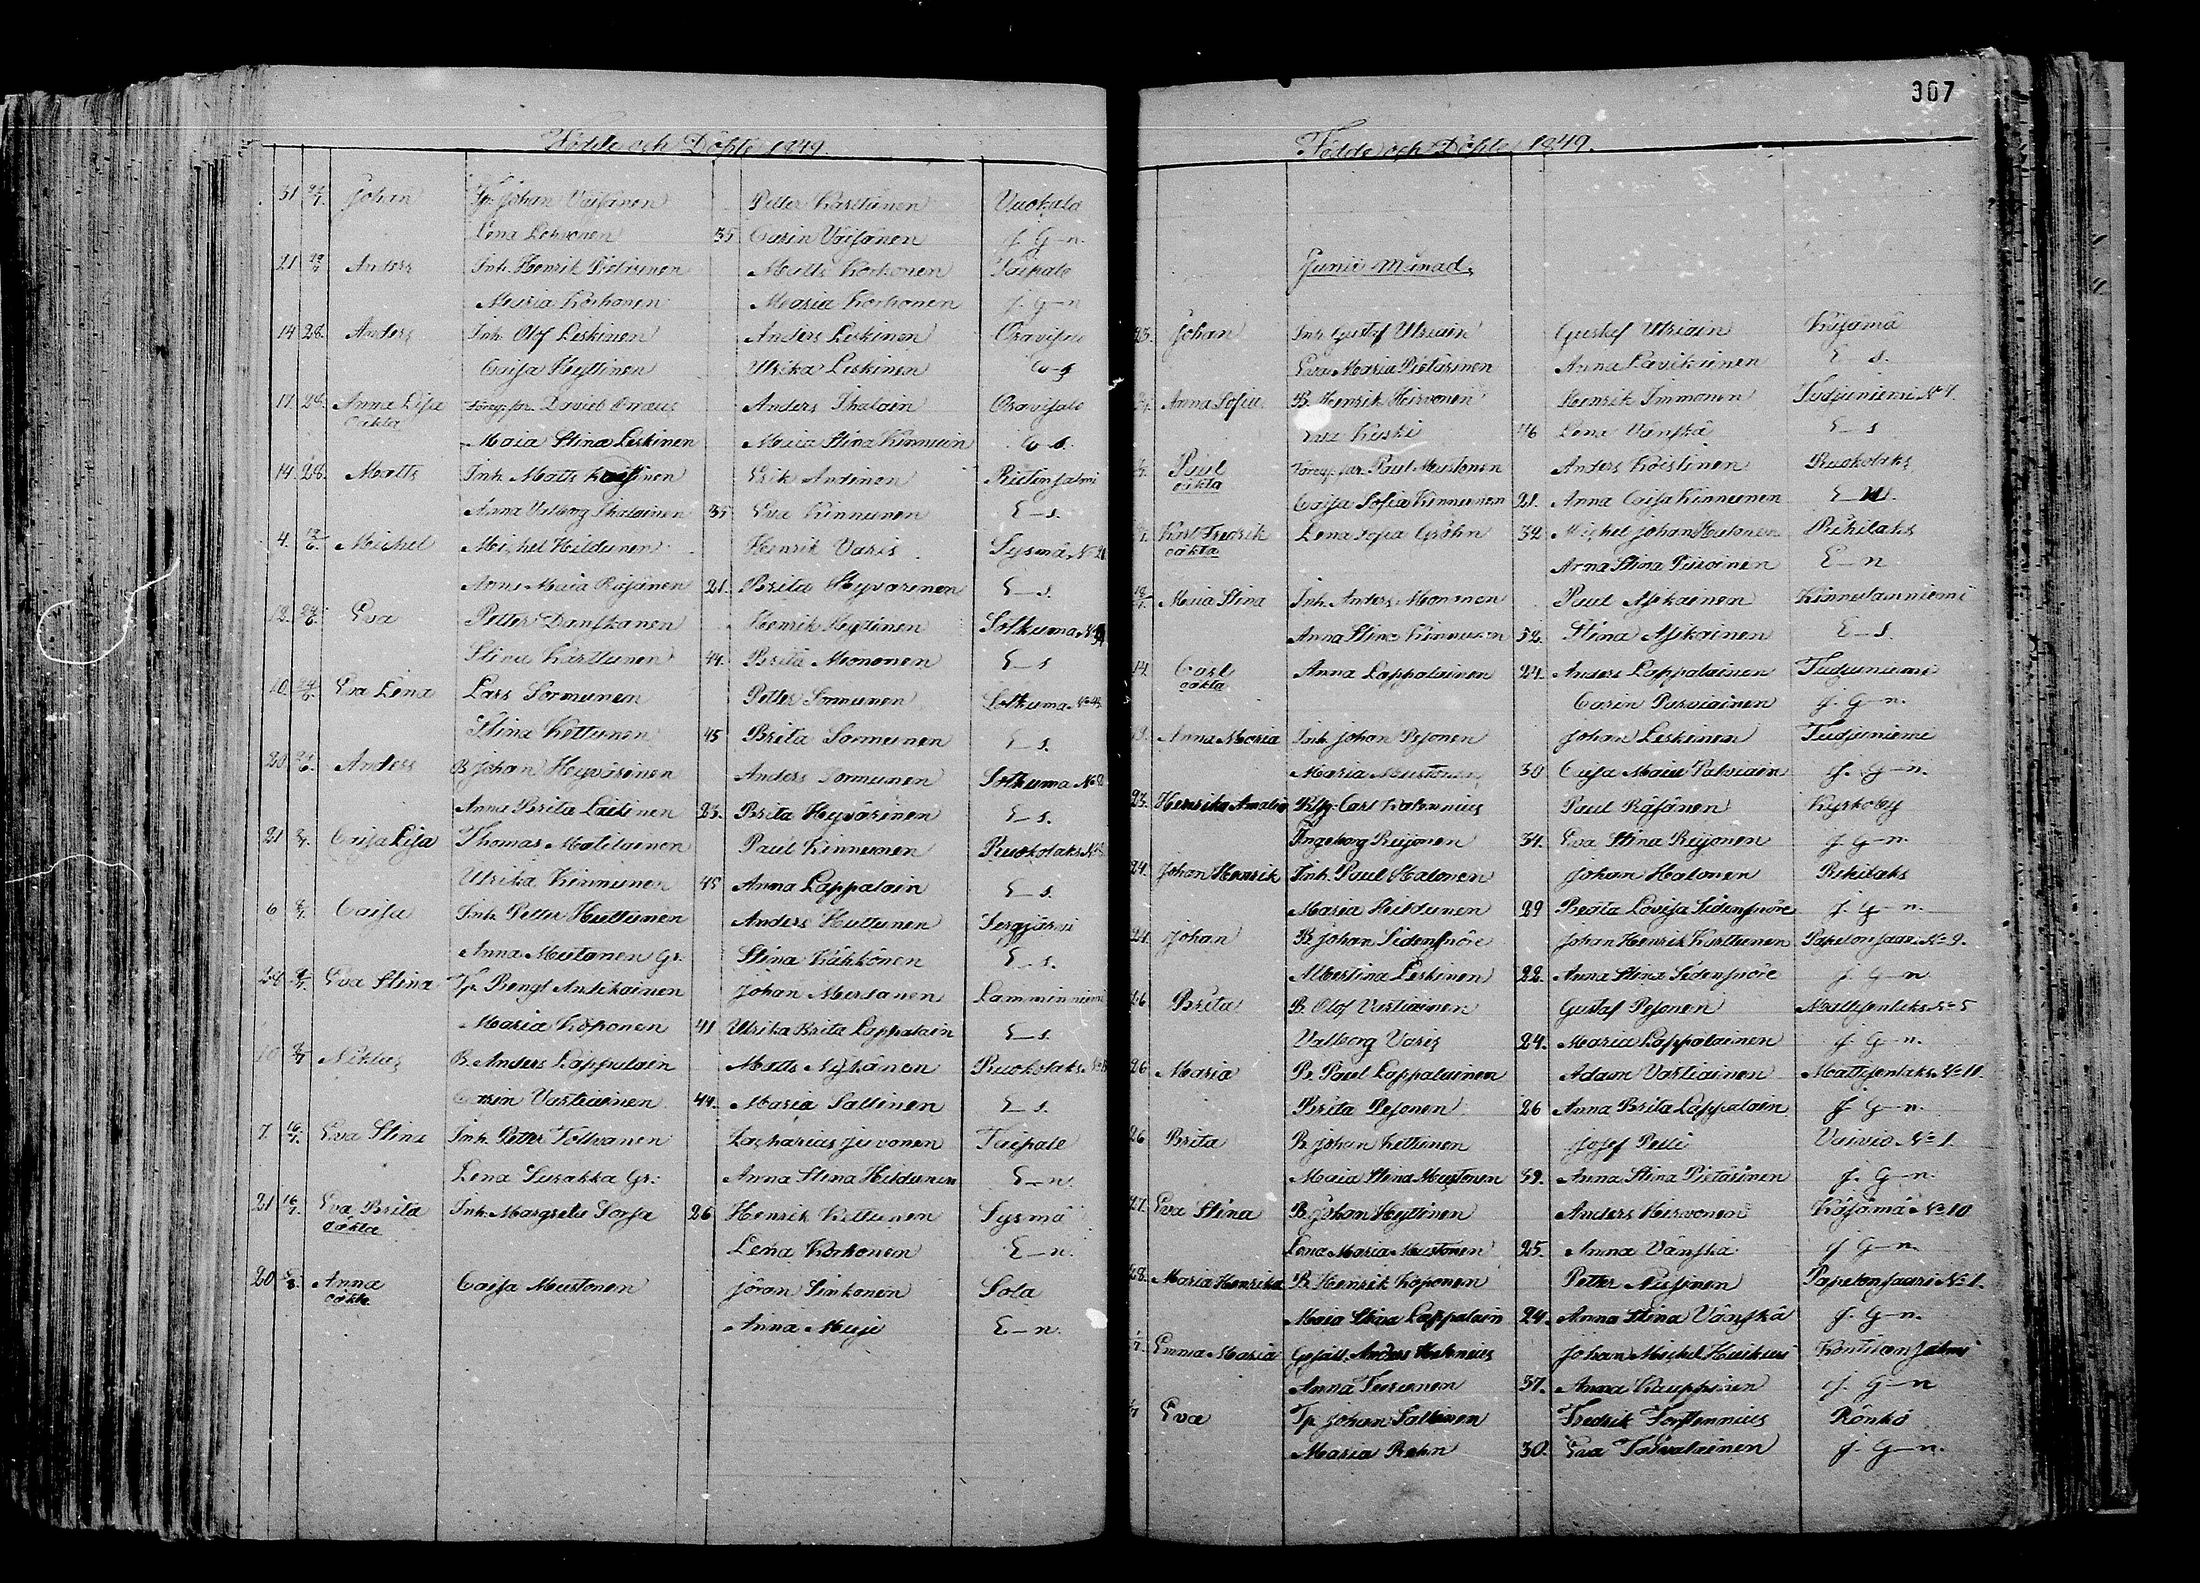 307
Födde och Döpte 1849.
31 27/7. Johan Tp. Johan Väisänen Petter Karttunen Vuokala
Lena Lehvonen 35 Carin Väisänen f. G–n.
21 29/7 Anders Inh. Henrik Pietarinen Matts Korhonen Taipale
Maria Korhonen Maria Korhonen f. G–n
14 28. Anders Inh. Olof Leskinen Anders Leskinen Oravisalo
Caisa Hyttinen Ulrika Leskinen
17. 28. Anna Lisa David Anders Ihalain Oravisalo
oäkta Maia Stina Leskinen Maia Stina Kinnuin
14. 28. Matts Inh. Matts Erik Andinen Ristinsalmi
Anna Valborg Ihalainen 35 Eva Kinnunen E–s.
4. Michel Michel Hildunen Henrik Varis Sysmä
Anna Maia Räsänen 21. Brita Hyvärinen E–s.
12. 24/6. Eva Petter Danskanen Henrik Hyttinen Sotkuma
Stina Karttunen 44. Brita Mononen E–s
10. 24/6. Eva Lena Lars Sormunen Petter Sormunen Sotkuma
Stina Kettunen 45 Brita Sormunen E–s.
20 24/6. Anders B. Johan Hyvärinen Anders Sormunen Sotkuma
Anna Brita Laitinen 23. Brita Hyvärinen E–s.
21 Caisa Lisa Thomas Matilainen Paul Kinnunen Ruokolaks
Ulrika Kinnunen 45 Anna Lappalain E–s.
6 Caisa Inh. Petter Huttunen Anders Huttunen
Anna Mustonen Gr. Stina Käkkönen E–s.
Eva Stina Tp. Bengt Antikainen Johan Mertanen Lamminniemi
Maria Koponen 41 Ulrika Brita Lappalain E–s.
10 Niklas B. Anders Lappalain Matts Nykänen Ruokolaks
Carin Vartiainen 44. Maria Sallinen E–s.
7. 16/7. Eva Stina Inh. Petter Tolvanen Zacharias Jivonen Taipale
Lena Surakka Gr. Anna Stina Hildunen E–n.
21 16/7. Eva Brita Inh. Margreta Torsa 26 Henrik Kettunen Sysmä
oäkta Lena Korhonen E–n.
20 Anna Caisa Mustonen Jöran Sinkonen Sola
oäkta Anna E–n.
Födde och Döpte 1849.
Junii Månad.
23. Johan Inh. Gustaf Ulriain Gustaf Ulriain Käsämä
Eva Maria Pietarinen Anna Lavikainen E–s.
Anna Sofia B. Henrik Hirvonen Henrik Immonen Tudjuniemi No 7.
Eva Koski 46 Lena Vänskä E–s
Paul Paul Mustonen Anders Koistinen Ruokolaks
oäkta Caisa Sofia Kinnunen 21. Anna Caisa Kinnunen
Karl Fredrik Lena Sofia Gröhn 32. Michel Johan Hulonen Rikilaks
oäkta Anna Stina Piiroinen E–n
Maia Stina Inh. Anders Mononen Paul Asikainen Kinnulanniemi
Anna Stina Kinnunen 32. Stina Asikainen E–s
14. Carl Anna Lappalainen 24. Anders Lappalainen Tudjuniemi
oäkta Carin Parviainen f. G–n.
Anna Maria Inh. Johan Pesonen Johan Leskinen Tudjuniemi
Maria Mustonen 30 Caisa Maia Palviain f. G–n.
23. Henrika Amalia Carl Walennius Paul Räsänen Kyrkoby
Ingeborg Reijonen 34. Eva Stina Reijonen f. G–n.
24. Johan Henrik Inh. Paul Halonen Johan Halonen Rikilaks
Maria Hildunen 29 Beata Lovisa Sidensnöre f. G–n.
24. Johan B. Johan Sidensnöre Johan Henrik Karttunen Papelonsaari No 9.
Albertina Leskinen 22. Anna Stina Sidensnöre f. G–n
26 Brita B. Olof Vartiainen Gustaf Pesonen Mattisenlaks No 5
Valborg Varis 24. Maria Lappalainen f. G–n.
26 Maria B. Paul Lappalainen Adam Vartiainen Mattisenlaks No 11.
Brita Pesonen 26 Anna Brita Lappalain f. G–n.
26 Brita B. Johan Kettunen Josef Pelli Vaivio No 1.
Maia Stina Mustonen 39. Anna Stina Pietarinen f. G–n.
27. Eva Stina B. Johan Hyttinen Anders Hirvonen Käsämä No 10
Lena Maria Mustonen 25. Anna Vänskä f. G–n.
28. Maria Henrika B. Henrik Koponen Petter Nissinen Papelonsaari No 1.
Maia Stina Lappalain 24. Anna Stina Vänskä f. G–n.
Emma Maria Gesäll. Anders Johan Michel Kontiansalmi
Anna Turunen 37. Anna Kauppinen f. G–n
Eva Tp. Johan Sallinen Fredrik Forstennius Rönkö
Maria Rahn 30. Eva Toivalainen f. G–n.